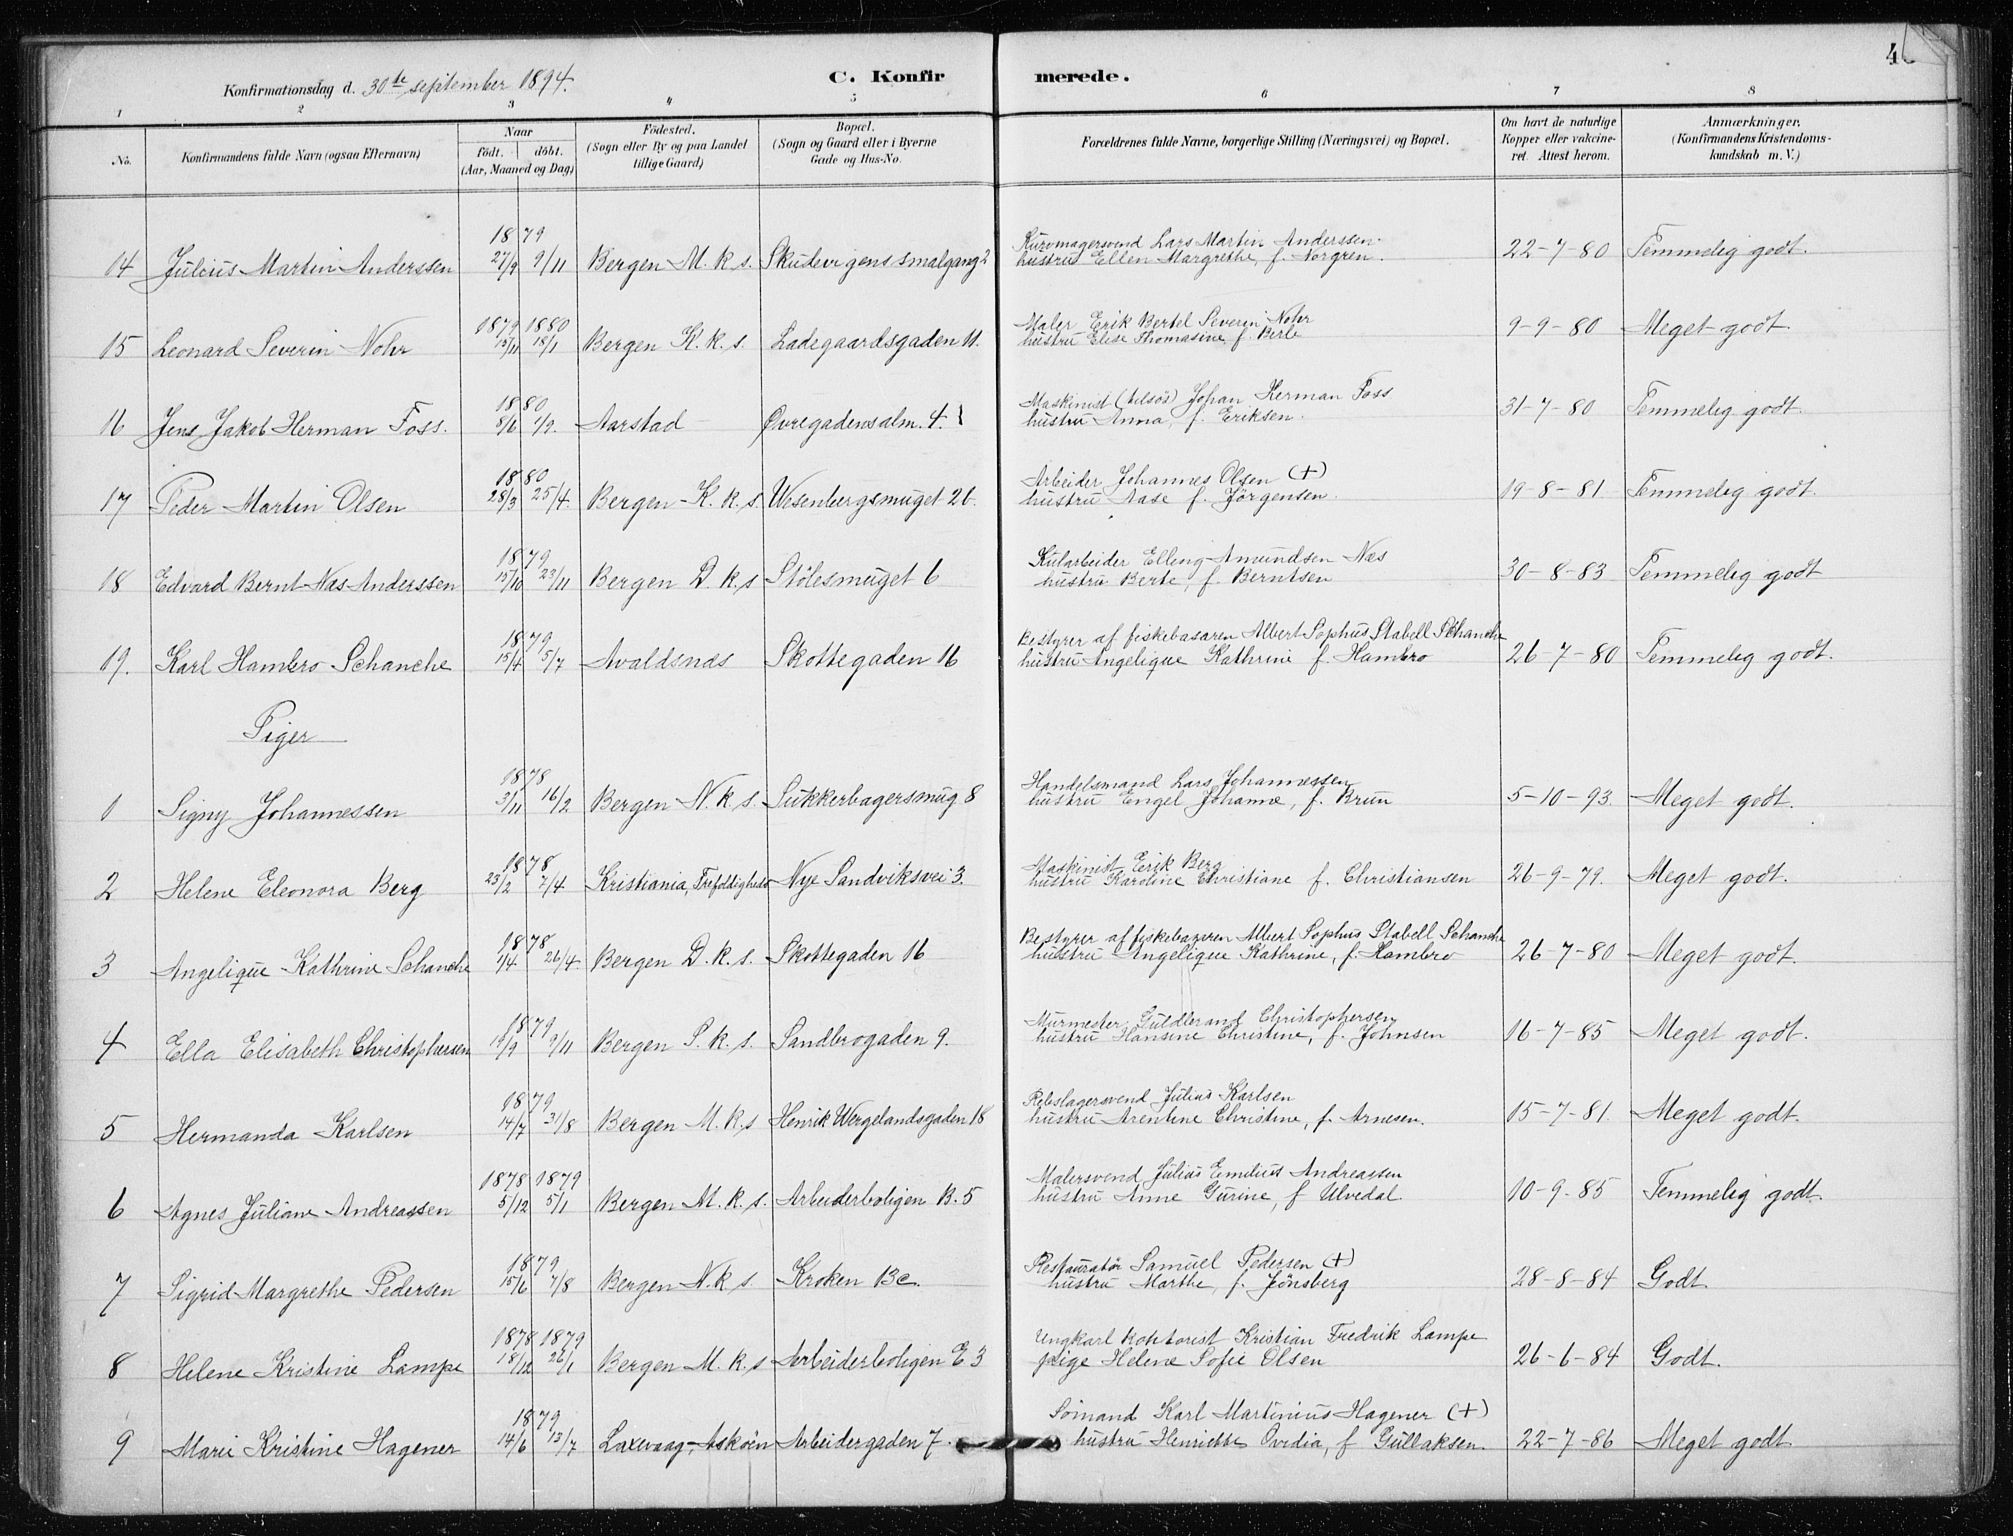 4
Konfirmationsdag d. 30te september 1894.
C. Konfirmerede.
1 2 3 4 5 6 7 8
No. Konfirmandens fulde Navn (ogsaa Efternavn) Naar født. døbt. (Aar, Maaned og Dag) Fødested. (Sogn eller By og paa Landet tillige Gaard) Bopæl. (Sogn og Gaard eller i Byerne Gade og Hus-No. Forældrenes fulde Navne, borgerlige Stilling (Næringsvei) og Bopæl. Om havt de naturlige Kopper eller vakcineret. Attest herom. Anmærkninger. (Konfirmandens Kristendomskundskab m. V.)
1879
Kurvmagersvend Lars Martin Anderssen.
14 Julius Martin Anderssen 27/9 9/11 Bergen M. k. s. Skudevigens smalgang 2 hustru Ellen Margrethe, f. Norgren. 22-7-80 Temmelig godt.
1879 1880
Maler Erik Bertel Severin Nohr
15 Leonard Severin Nohr 15/11 18/1 Bergen K. k. s. Ladegaardsgaden 11. hustru Elise Thomasine f. Berle 9-9-80 Meget godt
1880
Maskinist (tilsøs) Johan Herman Foss
16 Jens Jakob Herman Foss. 8/6 /9. Aarstad Øvregadensalm. 4. hustru Anna, f. Eriksen. 31-7-80 Temmelig godt.
1880
Arbeider Johannes Olsen (+)
17 Peder Martin Olsen 28/3 25/4. Bergen K. k. s. Wesenbergsmuget 26. hustru Aase f. Jørgensen. 19-8-81 Temmelig godt.
1879
Kularbeider Elling Amundsen Næs
18 Edvard Bernt Næs Anderssen 15/10 23/11 Bergen D. k. s Stølesmuget 6 hustru Berte, f. Berntsen 30-8-83 Temmelig godt
1879
Bestyrer af fiskebasaren Albert Sophus Stabell Schanche
19. Karl Hambro Schanche 15/4 5/7 Avaldsnæs Skottegaden 16 hustru Angelique Kathrine f. Hambro 26-7-80 Temmelig godt.
Piger
1878
Handelsmand Lars Johannessen
1 Signy Johannessen 3/11 16/2 Bergen N. k. s. Sukkerbagersmug 8 hustru Engel Johanne, f. Brun 5-10-93. Meget godt.
1878
Maskinist Erik Berg
2 Helene Eleonora Berg 23/2 7/4 Kristiania, Trefoldigheds Nye Sandviksvei 3. hustru Karoline Christiane f. Christiansen 26-9-79. Meget godt.
1878
Bestyrer af fiskebazeren Albert Sophus Stabell Schanche
3 Angelique Kathrine Schanche 1/4 26/4. Bergen D. k. s. Skottegaden 16 hustru Angelique Kathrine, f. Hambro 26-7-80 Meget godt.
1879
Murmester Guldbrand Christophersen
4 Ella Elisabeth Christophersen 19/9 9/11 Bergen S. k. s. Sandbrogaden 9. hustru Hansine Christine, f. Johnsen 16-7-85 Meget godt.
1879
Rebslagersvend Julius Karlsen
5 Hermanda Karlsen 14/7 31/8 Bergen M. k. s Henrik Wergelandsgaden 18 hustru Arentine Christine, f. Arnesen. 15-7-81. Meget godt.
1878 1879
Malersvend Julius Emilius Andreassen
6 Agnes Juliane Andreassen 5/12 5/1 Bergen M. k. s. Arbeiderboligen B. 5 hustru Anne Gurine, f Ulvedal 10-9-85 Temmelig godt.
1879
Restauratør Samuel Pedersen (+)
7 Sigrid Margrethe Pedersen 15/6 7/8 Bergen N. k. s Kroken 13c. hustru Marthe, f. Jönsberg 28-8-84 Godt
1878 1879
Ungkarl kontorist Kristian Fredrik Lampe
8 Helene Kristine Lampe 18/12 26/1 Bergen M. k. s Arbeiderboligen E 3 pige Helene Sofie Olsen 26-6-84 Godt.
1879
Sømand Karl Martinius Hagener (+)
9 Marie Kristine Hagener 14/6 13/7 Laxevaag, Askøen Arbeidergaden 7. hustru Henriette Ovidia, f Gullaksen. 22-7-86 Meget godt